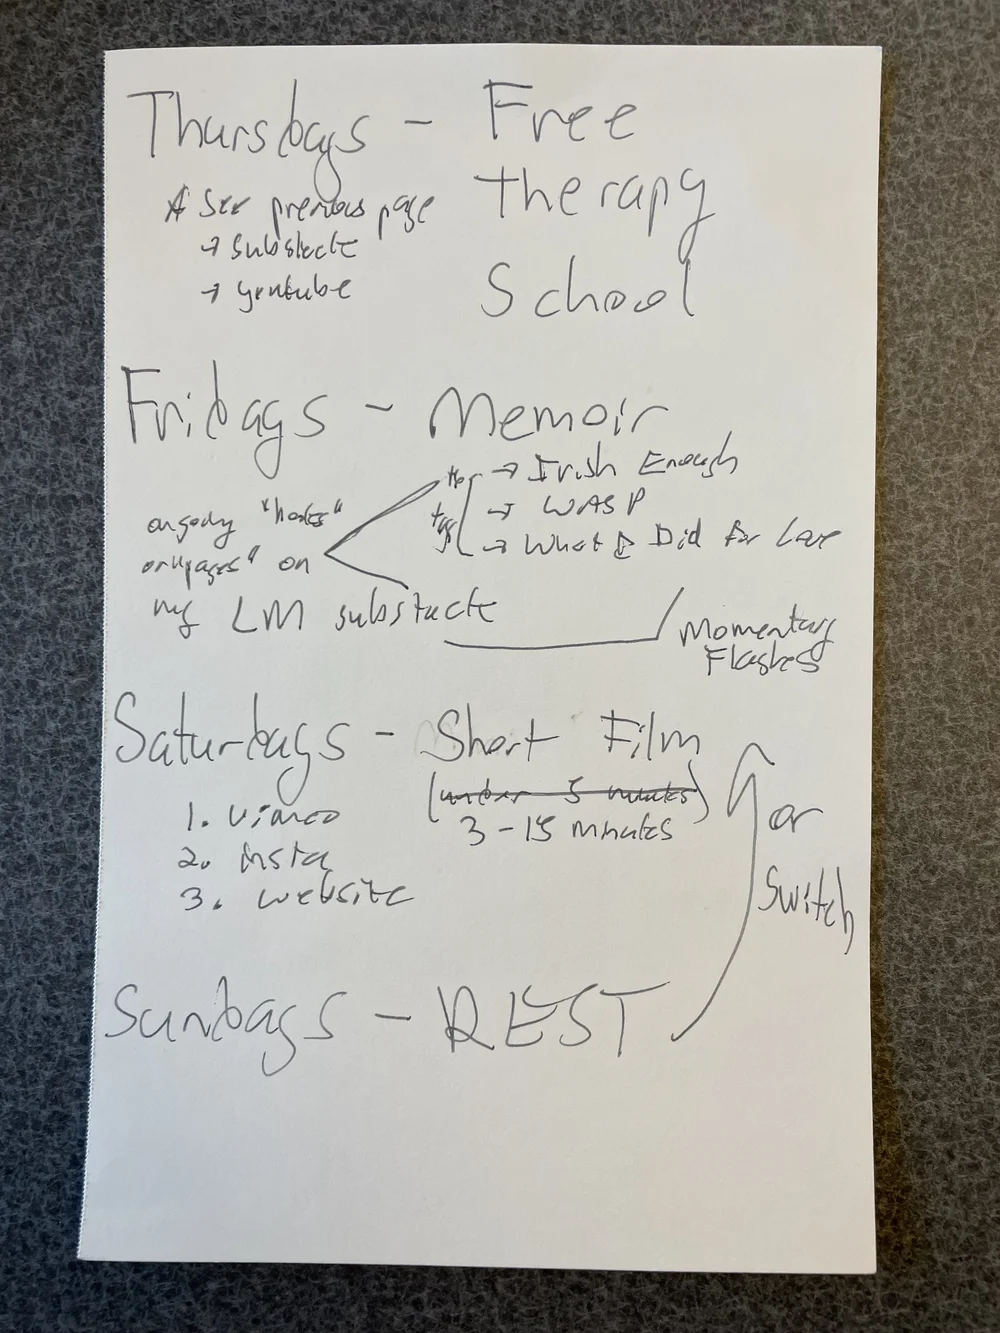 Thursdays - Free
therapy
School
* See previous page
→ substack
→ youtube
Fridays - Memoir
the tags
→ Irish Enough
→ WASP
→ What I Did for Love
ongoing "books"
or "pages" on
my LM substack
Momentary
Flashes
Saturdays - Short Film
(under 5 minutes)
3-15 minutes
1. vimeo
2. insta
3. website
or
Switch
Sundays - REST